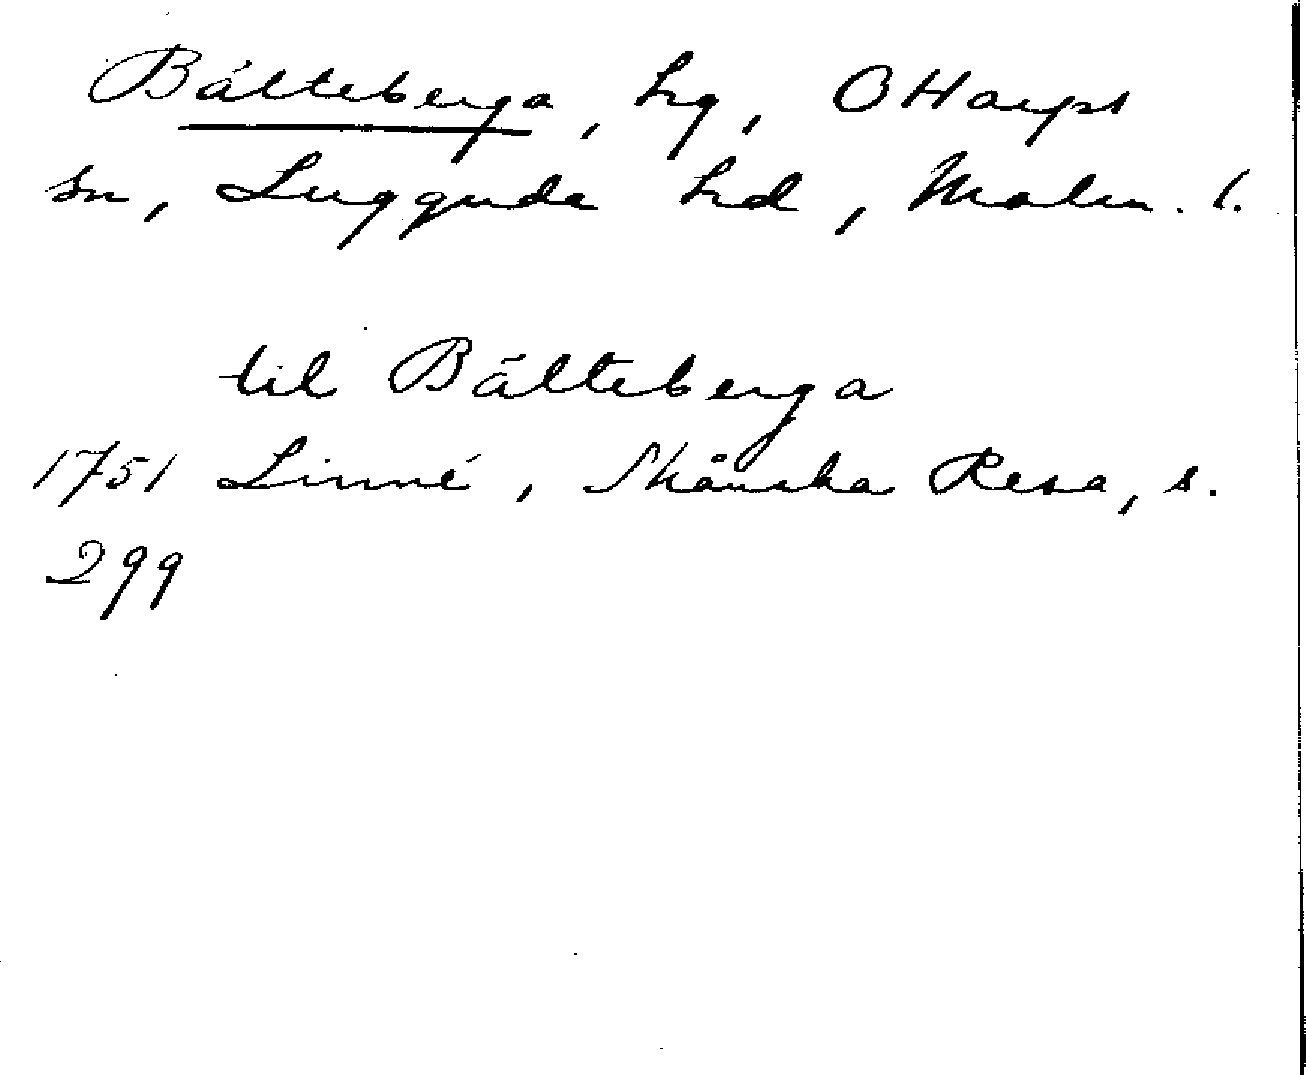 Bälteberga, hg, OHarps
sn, Luggude hd, Malm. l.
til Bälteberga
1751 Linné, Skånska Resa, s.
299